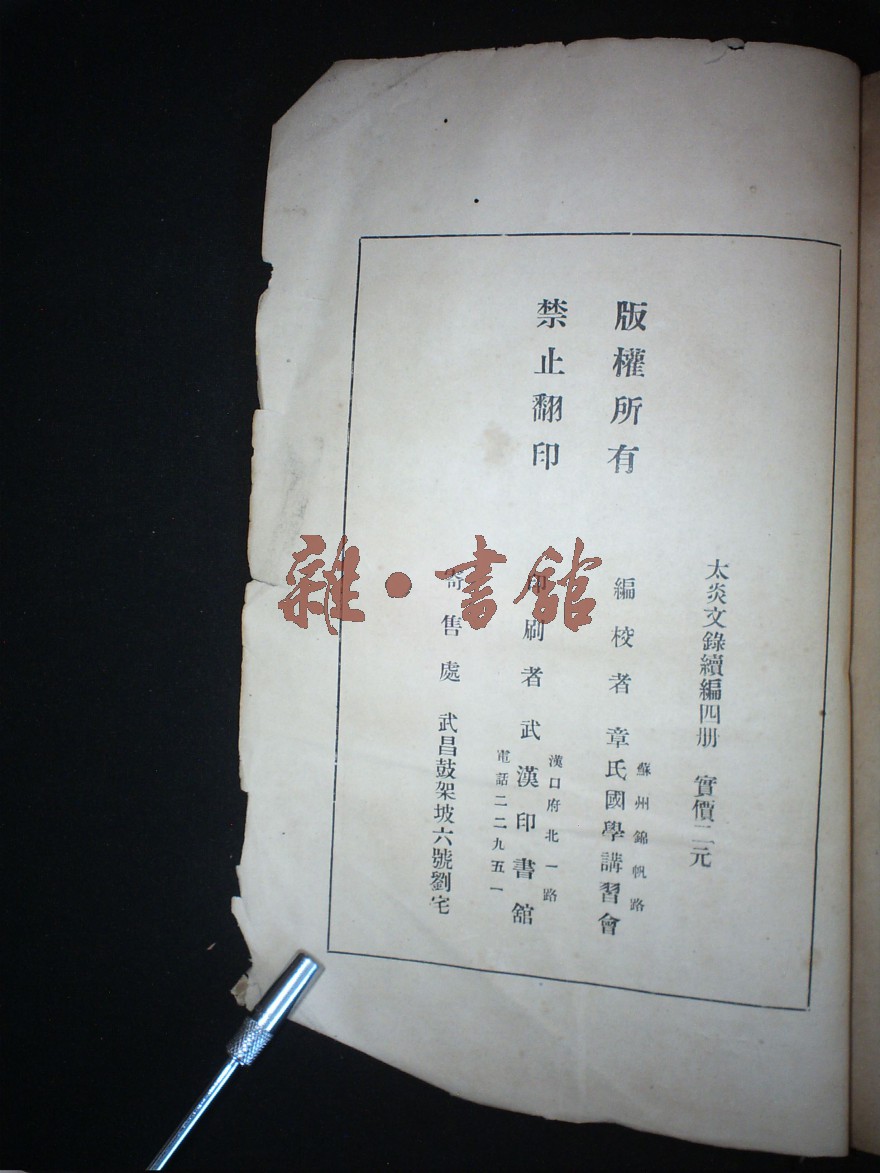 太炎文錄續編四册 實價二元
版權所有
編校者 章氏國學講習會
蘇州錦帆路
禁止翻印
印刷者 武漢印書舘
漢口府北一路
電話二二九五一
寄售處 武昌鼓架坡六號劉宅
雜·書舘